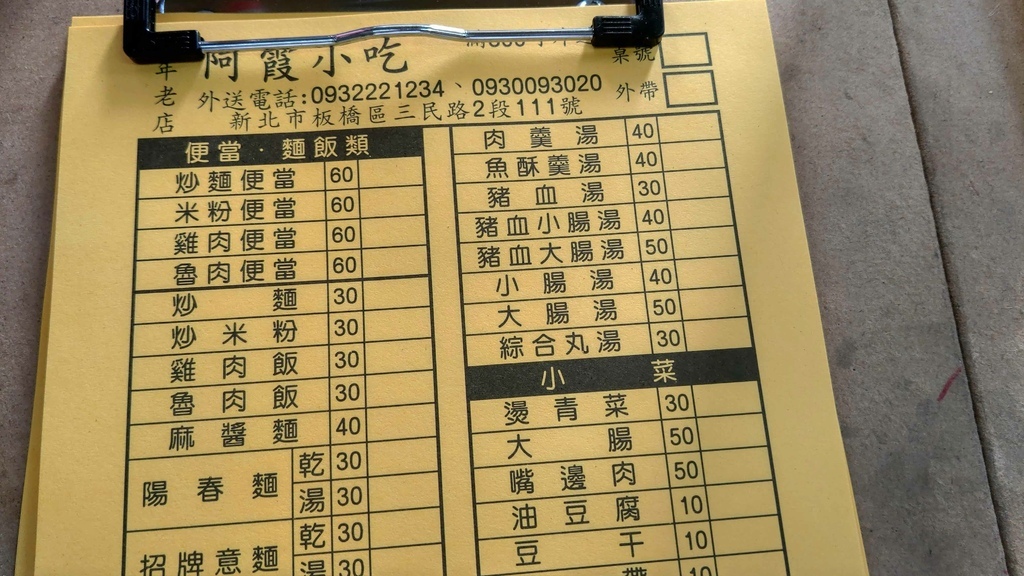 年老店
阿霞小吃
桌號
外送電話:0932221234、0930093020
外帶
新北市板橋區三民路2段111號
便當·麵飯類
炒麵便當 60
米粉便當 60
雞肉便當 60
魯肉便當 60
炒麵 30
炒米粉 30
雞肉飯 30
魯肉飯 30
麻醬麵 40
陽春麵 乾 30
湯 30
招牌意麵 乾 30
湯 30
肉羹湯 40
魚酥羹湯 40
豬血湯 30
豬血小腸湯 40
豬血大腸湯 50
小腸湯 40
大腸湯 50
綜合丸湯 30
小菜
燙青菜 30
大腸 50
嘴邊肉 50
油豆腐 10
豆干 10
帶 10